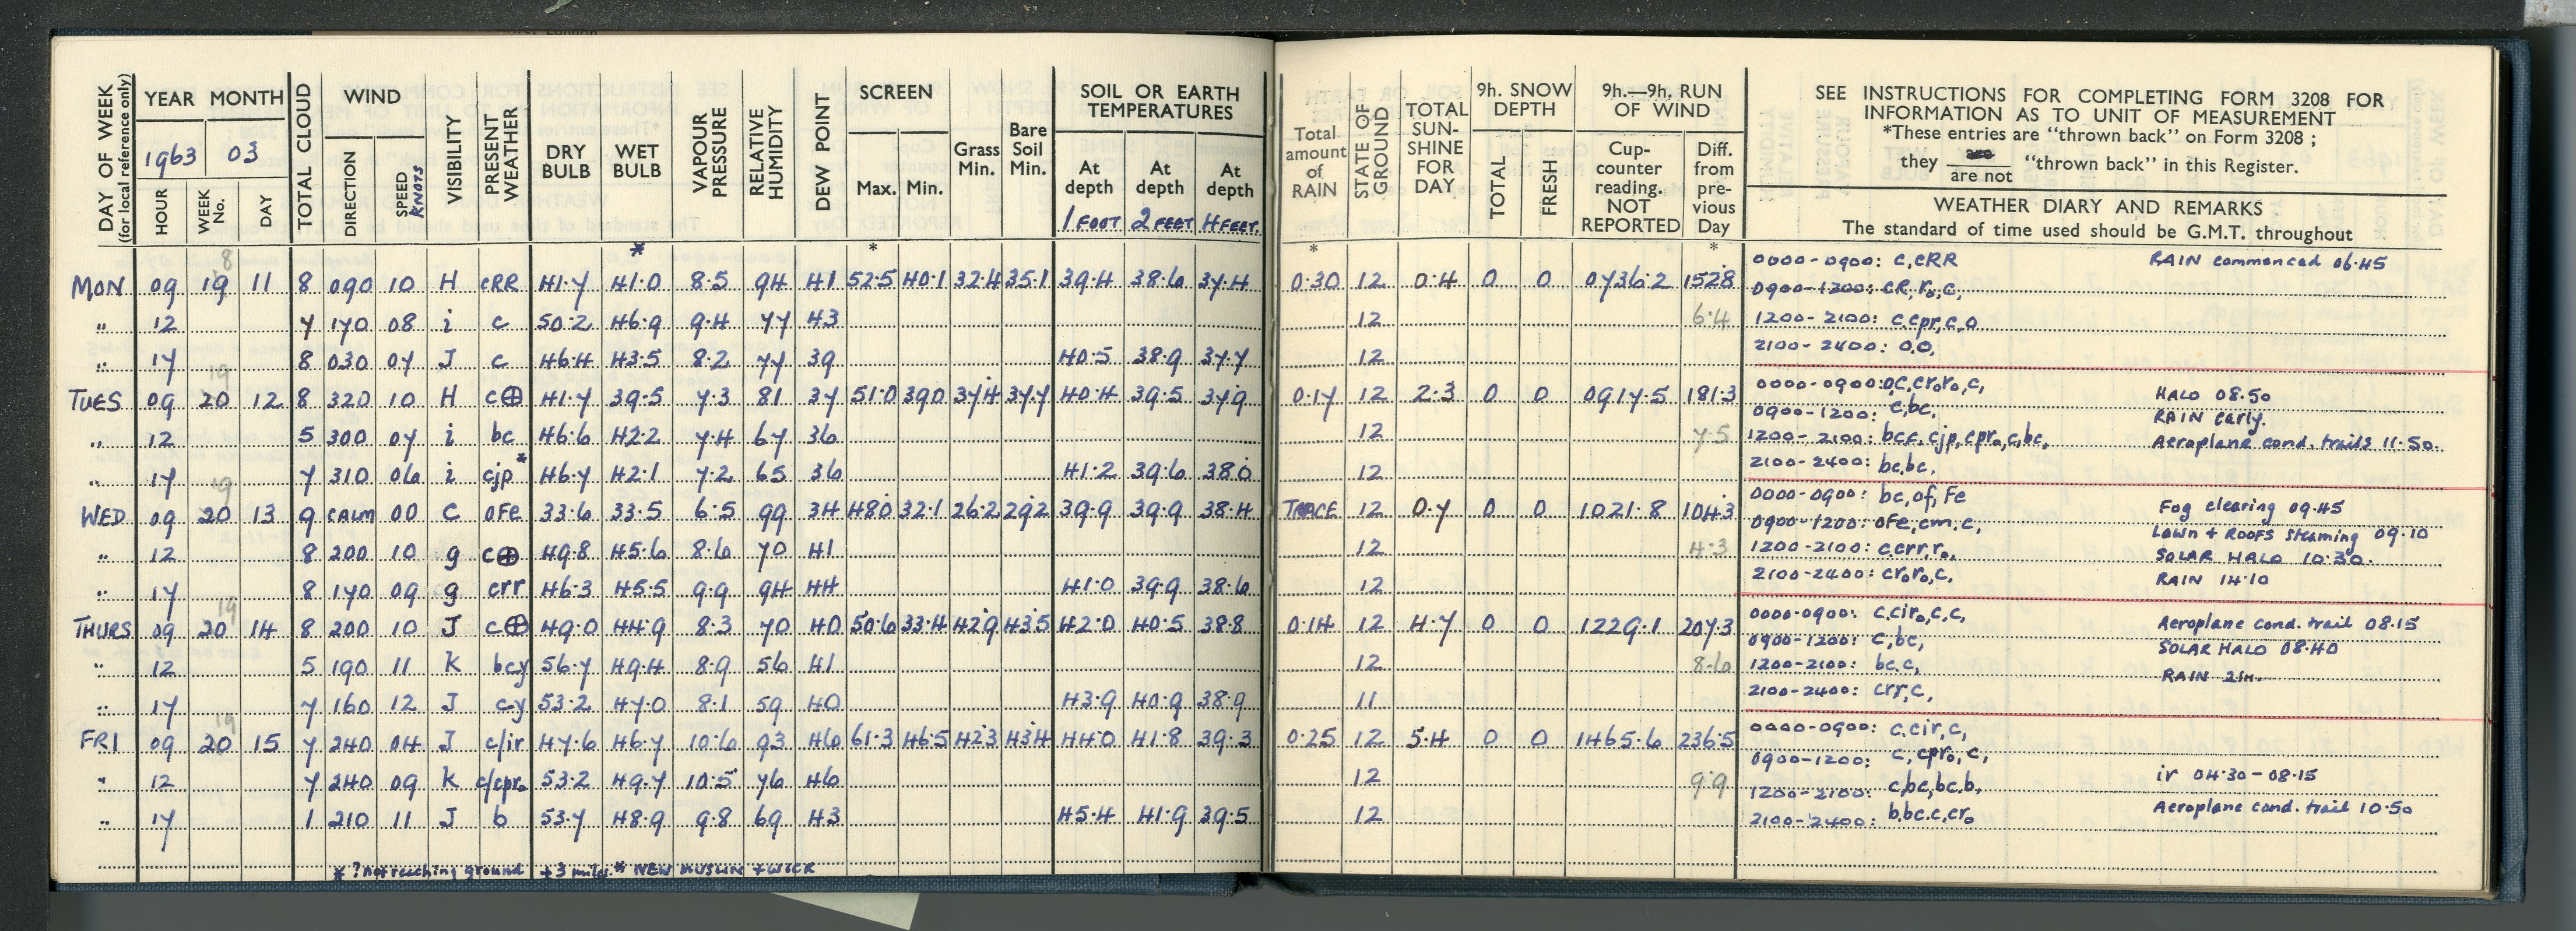 DAY OF WEEK (for local reference only) YEAR MONTH TOTAL CLOUD WIND VISIBILITY PRESENT WEATHER DRY BULB WET BULB VAPOUR PRESSURE RELATIVE HUMIDITY DEW POINT SCREEN Grass Min. Bare Soil Min. SOIL OR EARTH TEMPERATURES
1963 03
HOUR WEEK No. DAY DIRECTION SPEED KNOTS Max. Min. At depth 1 FOOT At depth 2 FEET At depth 4 FEET.
Total amount of RAIN STATE OF GROUND TOTAL SUN-SHINE FOR DAY 9h. SNOW DEPTH TOTAL FRESH 9h.—9h. RUN OF WIND Cup-counter reading. NOT REPORTED Diff. from pre-vious Day
SEE INSTRUCTIONS FOR COMPLETING FORM 3208 FOR
INFORMATION AS TO UNIT OF MEASUREMENT
*These entries are "thrown back" on Form 3208 ;
they are / are not "thrown back" in this Register.
WEATHER DIARY AND REMARKS
The standard of time used should be G.M.T. throughout
* * * *
MON 09 19 8 11 8 090 10 4 cRR 41.7 41.0 8.5 94 41 52.5 40.1 32.4 35.1 39.4 38.6 37.4 0.30 12 0.4 0 0 0736.2 152.8
0000-0900: c,cRR RAIN commenced 06.45
0900-1200: cR,ro,c,
" 12 7 170 08 i c 50.2 46.9 9.4 77 43 12 6.4 1200-2100: c.cpr,c,o
" 17 8 030 07 J c 46.4 43.5 8.2 77 39 40.5 38.9 37.7 12 2100-2400: o.o,
TUES 09 20 19 12 8 320 10 4 c⊕ 41.7 39.5 7.3 81 37 51.0 39.0 37.4 37.7 40.4 39.5 37.9 0.17 12 2.3 0 0 0917.5 181.3
0000-0900: oc,croro,c, HALO 08.50
0900-1200: c,bc, RAIN early.
" 12 5 300 07 i bc 46.6 42.2 7.4 67 36 12 7.5 1200-2100: bcc,cjp,cpro,c,bc, Aeroplane cond. trails 11.50.
" 17 7 310 06 i cjp* 46.7 42.1 7.2 65 36 41.2 39.6 38.0 12 2100-2400: bc,bc,
WED 09 20 19 13 9 CALM 00 C oFe 33.6 33.5 6.5 99 34 48.0 32.1 26.2 29.2 39.9 39.9 38.4 TRACE 12 0.7 0 0 1021.8 104.3
0000-0900: bc,of,Fe Fog clearing 09.45
0900-1200: oFe,cm,c, Lawn + ROOFS Steaming 09.10
" 12 8 200 10 g c⊕ 49.8 45.6 8.6 70 41 12 4.3 1200-2100: c.crr,ro, SOLAR HALO 10.30.
" 17 8 170 09 g crr 46.3 45.5 9.9 94 44 41.0 39.9 38.6 12 2100-2400: croro,c, RAIN 14.10
THURS 09 20 19 14 8 200 10 J c⊕ 49.0 44.9 8.3 70 40 50.6 33.4 42.9 43.5 42.0 40.5 38.8 0.14 12 4.7 0 0 1229.1 207.3
0000-0900: c.ciro,c,c, Aeroplane cond. trail 08.15
0900-1200: c,bc, SOLAR HALO 08.40
" 12 5 190 11 K bcy 56.7 49.4 8.9 56 41 12 8.6 1200-2100: bc.c, RAIN 21H.
" 17 7 160 12 J cy 53.2 47.0 8.1 59 40 43.9 40.9 38.9 11 2100-2400: crr,c,
FRI 09 20 19 15 7 240 04 J c/ir 47.6 46.7 10.6 93 46 61.3 46.5 42.3 43.4 44.0 41.8 39.3 0.25 12 5.4 0 0 1465.6 236.5
0000-0900: c.cir,c,
0900-1200: c,cpro,c,
" 12 7 240 09 K c/cpro 53.2 49.7 10.5 76 46 12 9.9 1200-2100: c,bc,bc,b, ir 04.30-08.15
" 17 1 210 11 J b 53.7 48.9 9.8 69 43 45.4 41.9 39.5 12 2100-2400: b,bc.c,cro Aeroplane cond. trail 10.50
* ? not reaching ground +3 miles. * NEW MUSLIN + WICK